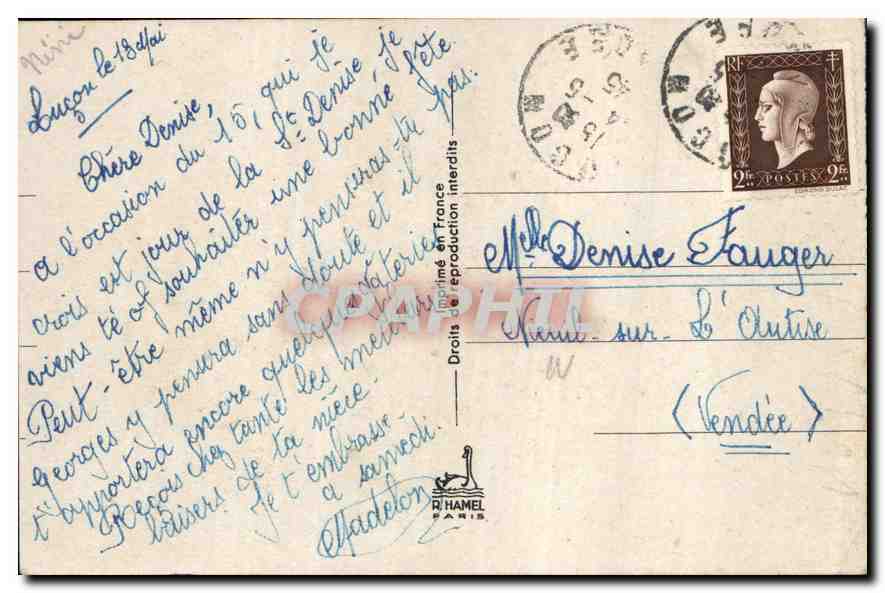 Nini
Luçon le 13 Mai
Chère Denise,
A l'occasion du 15, qui je
crois est jour de la St Denise je
viens te souhaiter une bonne fête.
Peut-être même n'y penseras-tu pas.
Georges y pensera sans doute et il
t'apportera encore quelques
Reçois chez tante les meilleurs
baisers de ta nièce.
Je t'embrasse
a samedi.
Madelon
Imprimé en France
Droits de reproduction interdits
R. HAMEL
PARIS
RF
2Fr.
POSTES
2Fr.
EDMOND DULAC
Melle Denise Fauger
Nieul-sur-L'Autise
(Vendée)
CPAPHIL